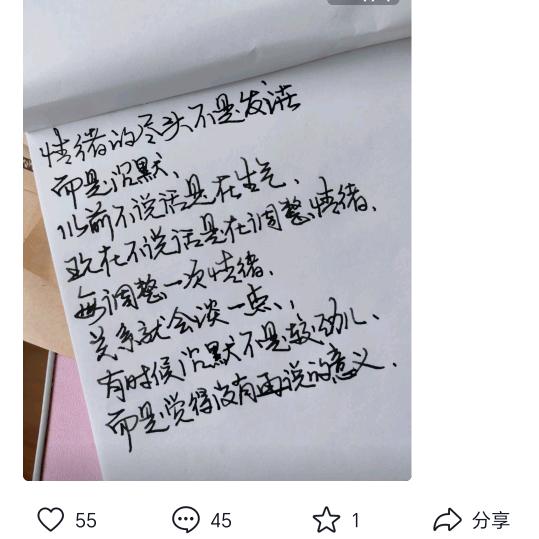 情绪的尽头不是发泄
而是沉默、
以前不说话是在生气、
现在不说话是在调整情绪、
每调整一次情绪、
关系就会淡一点、
有时候沉默不是较劲儿、
而是觉得没有再说的意义.
55
45
1
分享